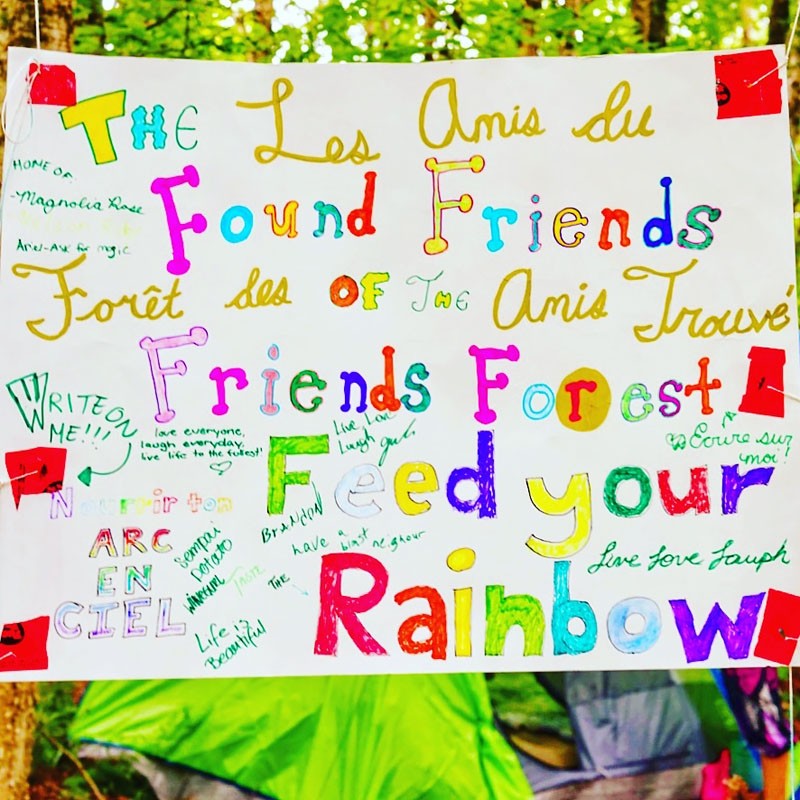 THE Les Amis du
HOME OF
-Magnolia Rose
Ariel-Ask for magic
Found Friends
Forêt des OF THE Amis Trouvé
Friends Forest
WRITE ON
ME!!!
love everyone,
laugh everyday,
live life to the fullest!
Live Love
Laugh
Écrire sur
moi!
Feed your
Nourrir ton
ARC
EN
CIEL
Sempai
potato
BRANDON
have a blast neighour
THE
Live Love Laugh
Rainbow
Life iz
Beautiful